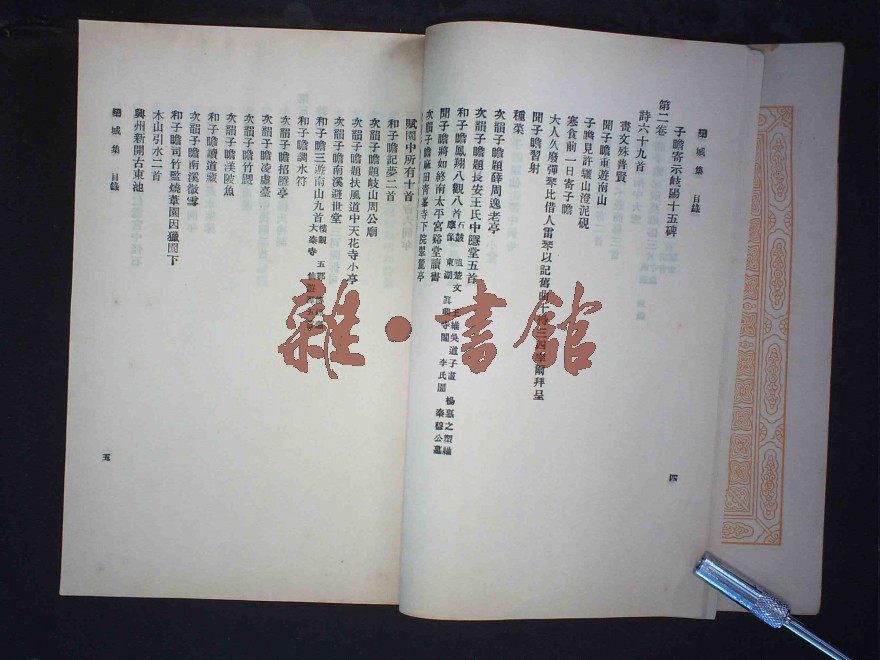 欒城集 目錄
子瞻寄示岐陽十五碑
第二卷
詩六十九首
畫文殊普賢
聞子瞻重遊南山
子瞻見許驪山澄泥硯
寒食前一日寄子瞻
大人久廢彈琴比借人雷琴以記舊曲十得三四率爾拜呈
聞子瞻習射
種菜
次韻子瞻題薛周逸老亭
次韻子瞻題長安王氏中隱堂五首
和子瞻鳳翔八觀八首 石鼓 詛楚文 王維吳道子畫 楊惠之塑維摩像 東湖 真興寺閣 李氏園 秦穆公墓
聞子瞻將如終南太平宮谿堂讀書
次韻子瞻麻田青峯寺下院翠麓亭
四
賦園中所有十首
和子瞻記夢二首
次韻子瞻題岐山周公廟
次韻子瞻題扶風道中天花寺小亭
次韻子瞻南溪避世堂
和子瞻三遊南山九首 樓觀 五郡 大秦寺
和子瞻調水符
次韻子瞻招隱亭
次韻子瞻凌虛臺
次韻子瞻竹䶉
次韻子瞻渼陂魚
和子瞻讀道藏
次韻子瞻南溪微雪
和子瞻司竹監燒葦園因獵園下
木山引水二首
興州新開古東池
欒城集 目錄
五
雜·書館